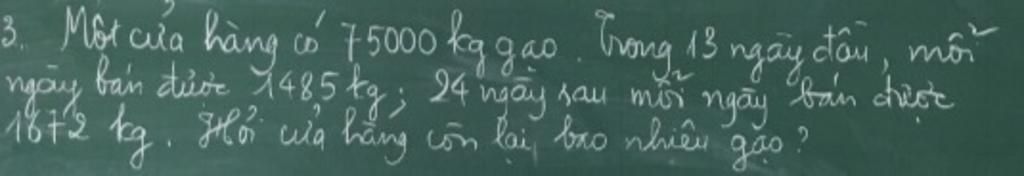 3. Một cửa hàng có 75000 kg gạo. Trong 13 ngày đầu, mỗi
ngày bán được 1485 kg; 24 ngày sau mỗi ngày bán được
1672 kg. Hỏi cửa hàng còn lại bao nhiêu gạo?